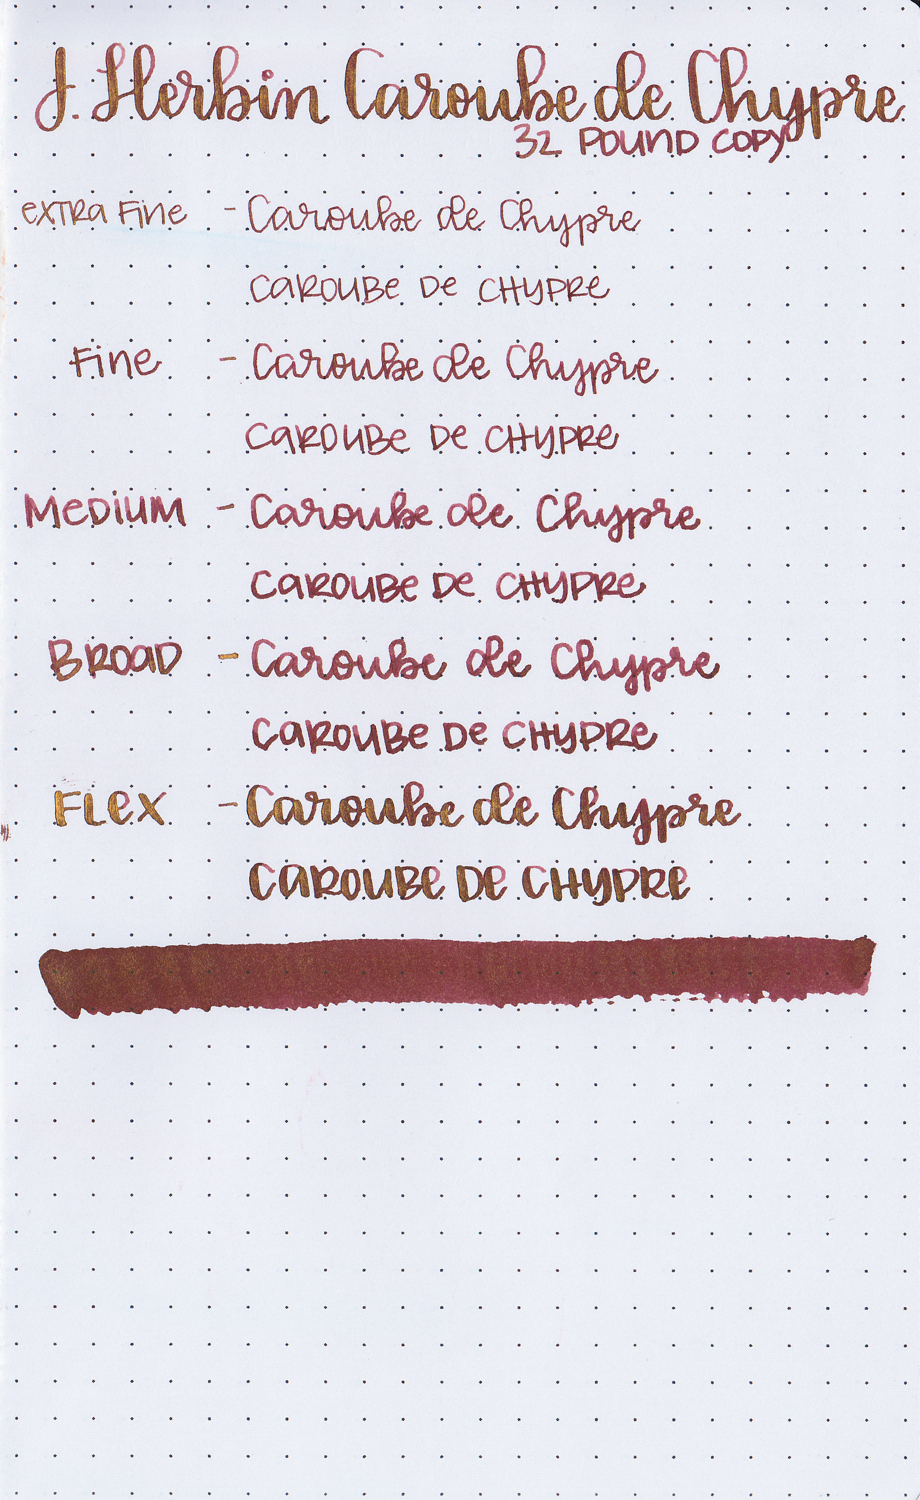 J. Herbin Caroube de Chypre
32 POUND COPY
extra Fine - Caroube de Chypre
CAROUBE DE CHYPRE
Fine - Caroube de Chypre
CAROUBE DE CHYPRE
MEDIUM - Caroube de Chypre
CAROUBE DE CHYPRE
BROAD - Caroube de Chypre
CAROUBE DE CHYPRE
FLEX - Caroube de Chypre
CAROUBE DE CHYPRE